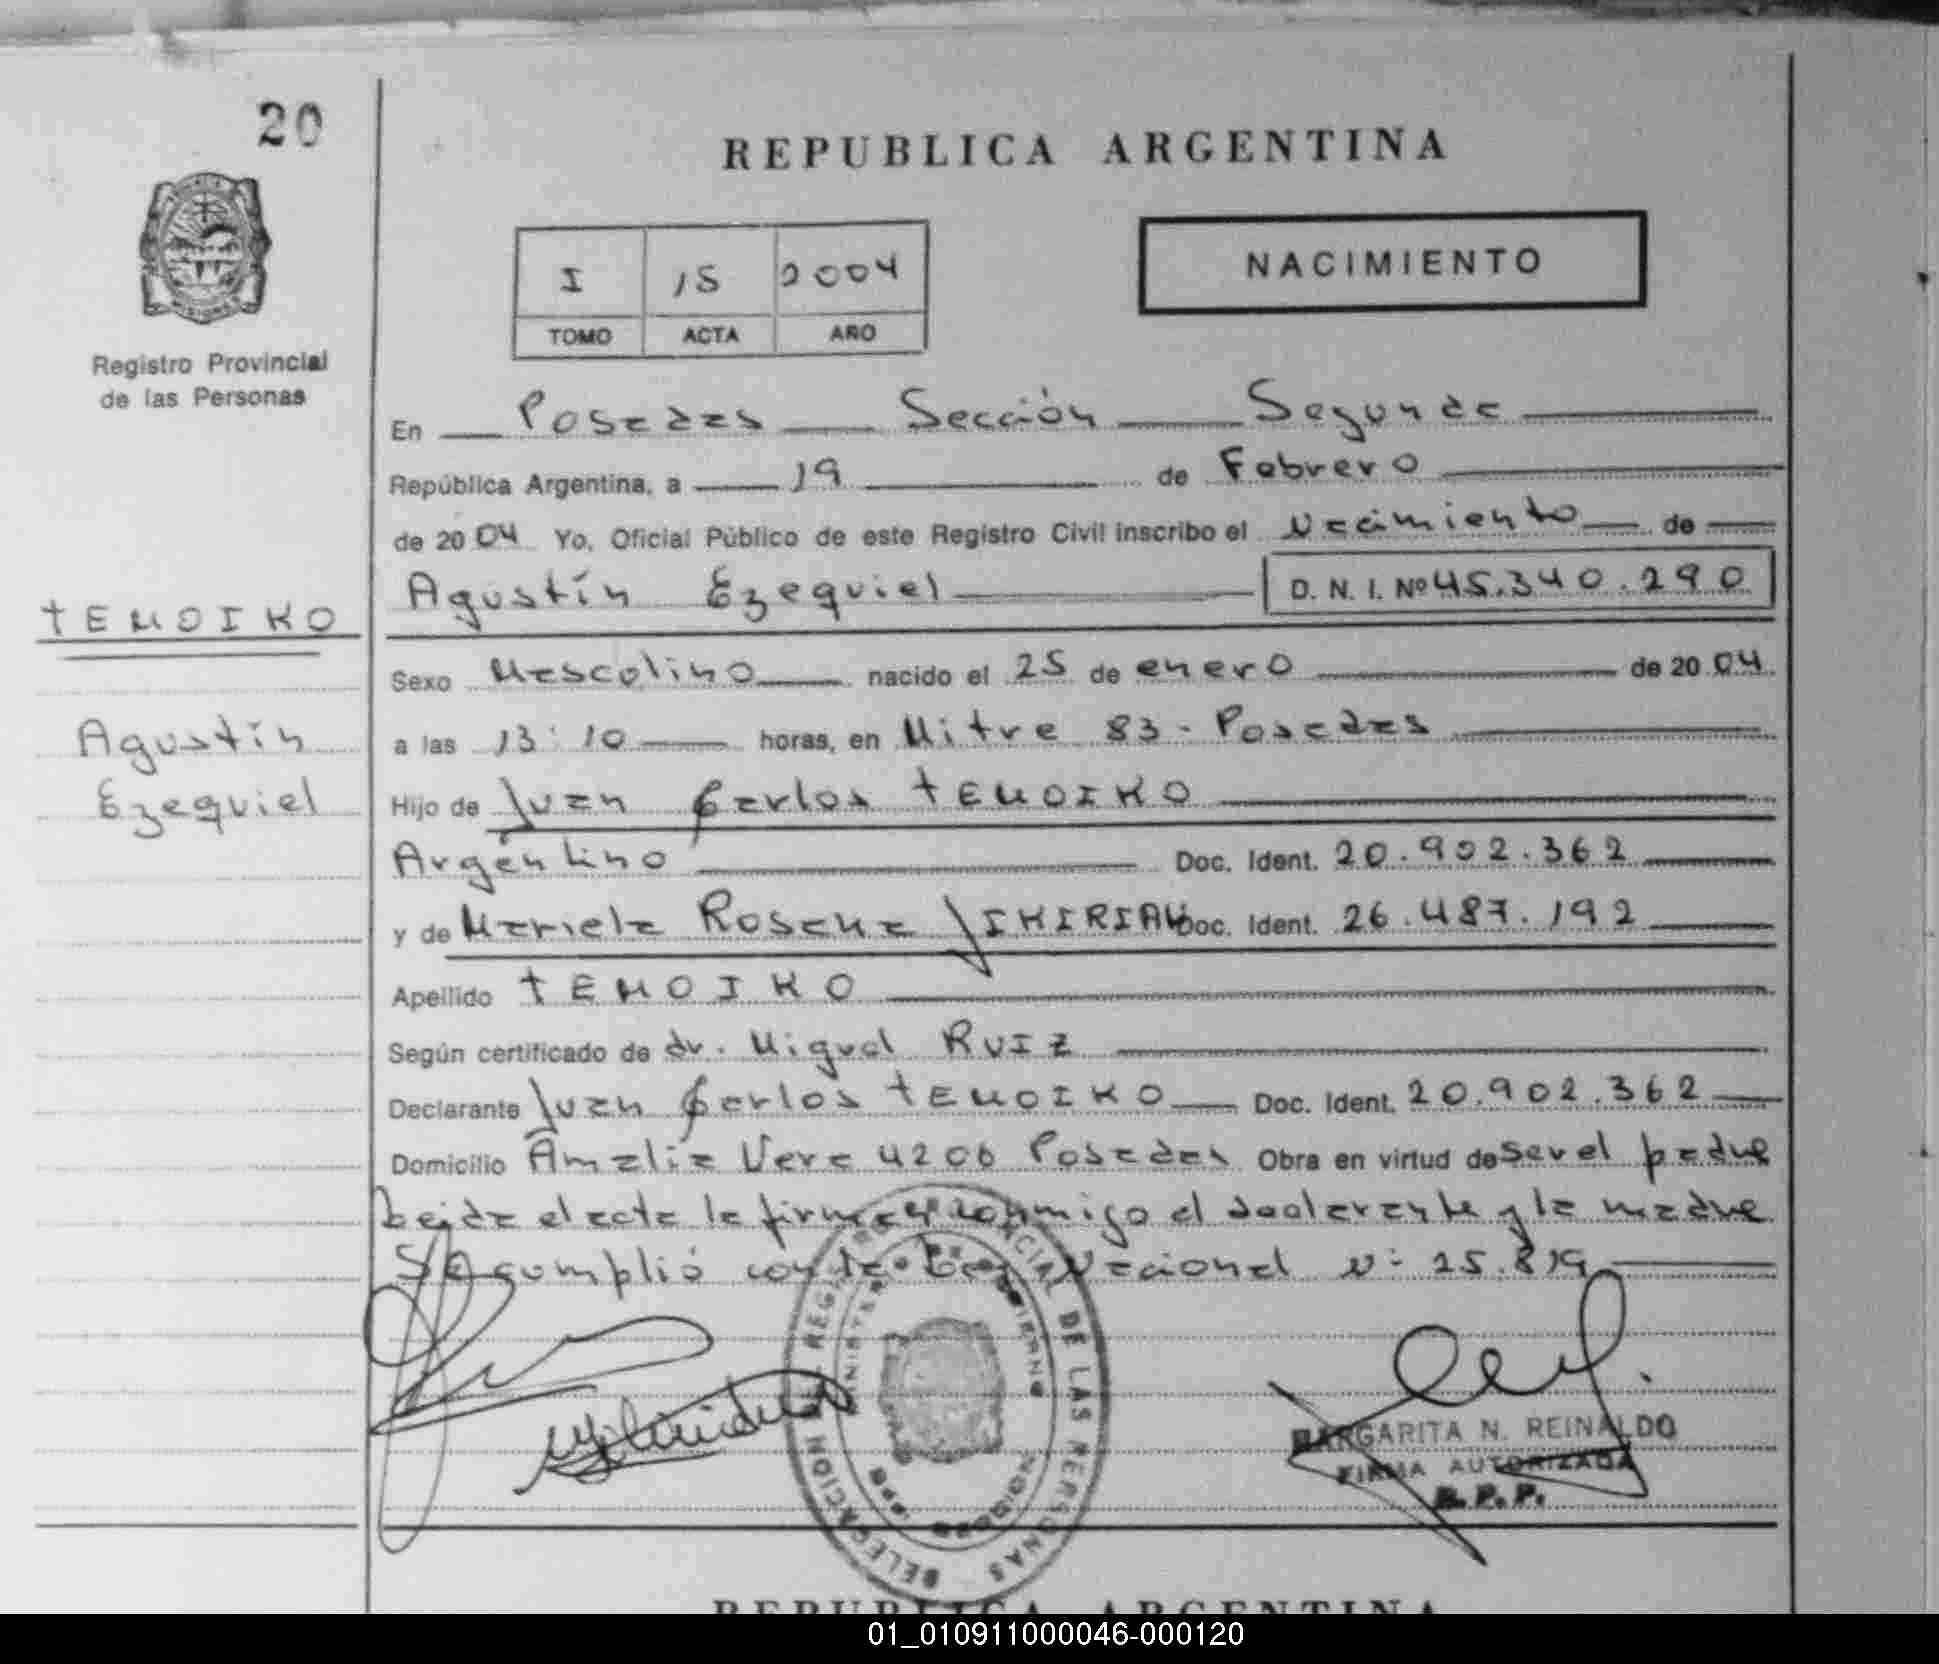 20
REPUBLICA ARGENTINA
I 15 2004
TOMO ACTA AÑO
NACIMIENTO
Registro Provincial
de las Personas
En Posadas Sección Segunda
República Argentina, a 19 de Febrero
de 2004 Yo, Oficial Público de este Registro Civil inscribo el Nacimiento de
Agustín Ezequiel D. N. I. Nº 45.340.290
TEMOIKO
Agustín
Ezequiel
Sexo Mascolino nacido el 25 de enero de 2004.
a las 13:10 horas, en Mitre 83 - Posadas
Hijo de Juan Carlos TEMOIKO
Argentino Doc. Ident. 20.902.362
y de Mariela Rosana Doc. Ident. 26.487.192
Apellido TEMOIKO
Según certificado de dr. Miguel RUIZ
Declarante Juan Carlos TEMOIKO Doc. Ident. 20.902.362
Domicilio Amalia Vera 4206 Posadas Obra en virtud de ser el padre
Leida el acta la firman conmigo el declarante y la madre
Se cumplió con la Ley Nacional Nº 25.819
REGISTRO PROVINCIAL DE LAS PERSONAS
DELEGACION
MARGARITA N. REINALDO
FIRMA AUTORIZADA
R.P.P.
REPUBLICA ARGENTINA
01_010911000046-000120